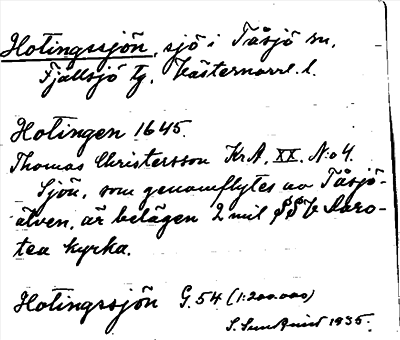 Hotingssjön, sjö i Tåsjö sn,
Fjällsjö tg, Västernorrl. l.
Hotingen 1645.
Thomas Christersson KrA, XX. No 4.
Sjön, som genomflytes av Tåsjö-
älven, är belägen 2 mil SSV Doro-
tea kyrka.
Hotingssjön G. 54 (1:200.000)
S. Sundqvist 1935.